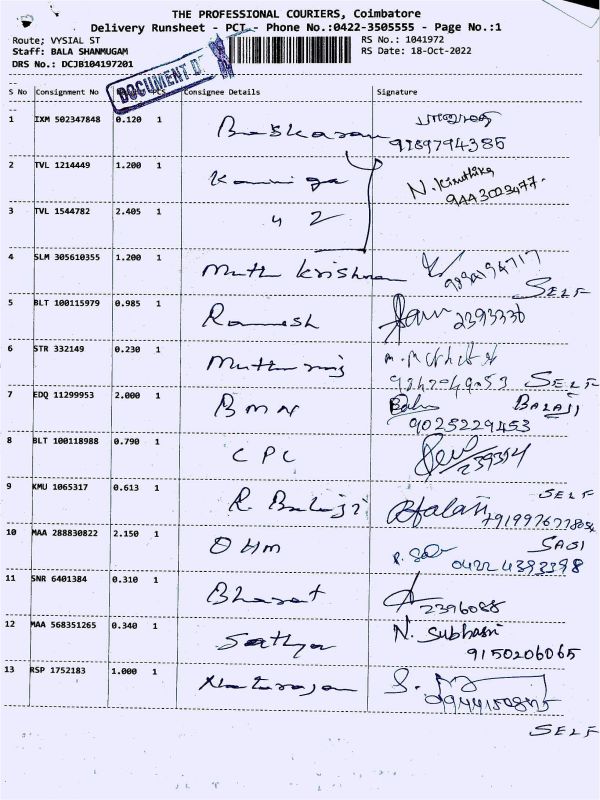 THE PROFESSIONAL COURIERS, Coimbatore
Delivery Runsheet - PCT - Phone No.:0422-3505555 - Page No.:1
Route: VYSIAL ST
RS No.: 1041972
Staff: BALA SHANMUGAM
RS Date: 18-Oct-2022
DRS No.: DCJB104197201
DOCUMENT
S No Consignment No Consignee Details Signature
1 IXM 502347848 0.120 1 Baskaran
9189794385
2 TVL 1214449 1.200 1 N. Kiruthika
9443023477
3 TVL 1544782 2.405 1
4 SLM 305610355 1.200 1 Muthu Krishnan
SELF
5 BLT 100115979 0.985 1 Ramesh 2393336
6 STR 332149 0.230 1 Muthu
SELF
7 EDQ 11299953 2.000 1 BMN BALAJI
9025229453
8 BLT 100118988 0.790 1 CPC
SELF
9 KMU 1065317 0.613 1 R. Balaji
SAGI
10 MAA 288830822 2.150 1 OHM
0422 4393398
11 SNR 6401384 0.310 1 Bharat 2396088
12 MAA 568351265 0.340 1 Sathya N. Subhasri
9150206065
13 RSP 1752183 1.000 1 Natarajan
SELF